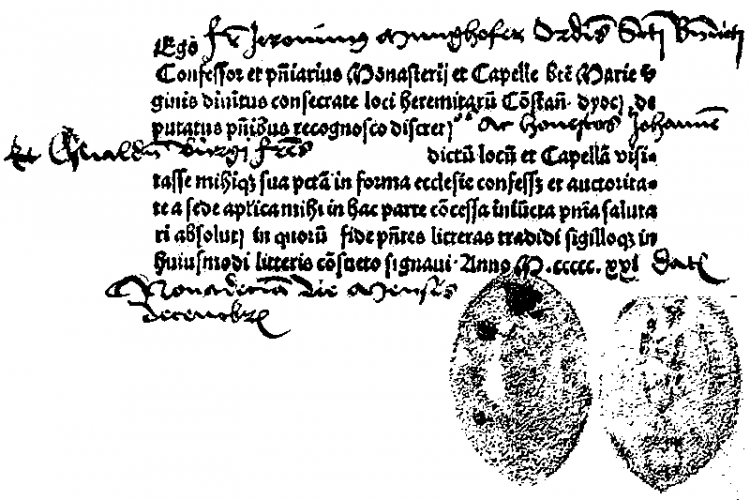 Ego fr̄ Jeronimus Munghofer Ordīs Scti Bn̄dicti
Confessor et pn̄iarius Monasterij et Capelle btē Marie v̄
ginis diuītus consecrate loci heremitarū Cōstan̄. dyocꝭ de
putatus pn̄ibus recognosco discretꝭ ac honestos Johannē
Et Oswaldū Birgi frēs dictū locū et Capellā visi-
tasse mihiqꝫ sua pctā in forma ecclesie confessꝫ et auctorita-
te a sede aplica mihi in hac parte cōcessa iniūcta pn̄ia saluta
ri absolutꝭ in quorū fide pn̄tes litteras tradidi sigilloqꝫ in
huiusmodi litteris cōsueto signaui. Anno M.ccccc.xxi Datꝭ
Nonadecima die Mensis
Decembrꝭ